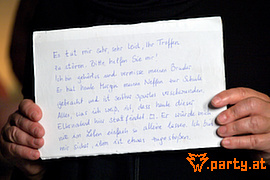 Es tut mir sehr, sehr leid, Ihr Treffen
zu stören. Bitte helfen Sie mir!
Ich bin gehörlos und vermisse meinen Bruder.
Er hat heute Morgen meinen Neffen zur Schule
gebracht und ist seither spurlos verschwunden.
Alles, was ich weiß, ist, dass heute dieser
Elternabend hier stattfindet. Er würde mich
nie im Leben einfach so alleine lassen. Ich bin
mir sicher, ihm ist etwas zugestoßen.
party.at